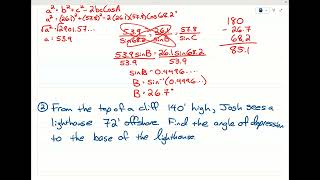 a² = b² + c² - 2bc CosA
a² = (26.1)² + (57.8)² - 2(26.1)(57.8)Cos68.2°
√a² = √2901.57...
a = 53.9
53.9/sin68.2 = 26.1/sinB = 57.8/sinC
53.9 sinB/53.9 = 26.1 sin68.2/53.9
sinB = 0.4496...
B = sin⁻¹(0.4496...)
B = 26.7°
180
- 26.7
68.2
85.1
② From the top of a cliff 140' high, Josh sees a
lighthouse 72' offshore. Find the angle of depression
to the base of the lighthouse.